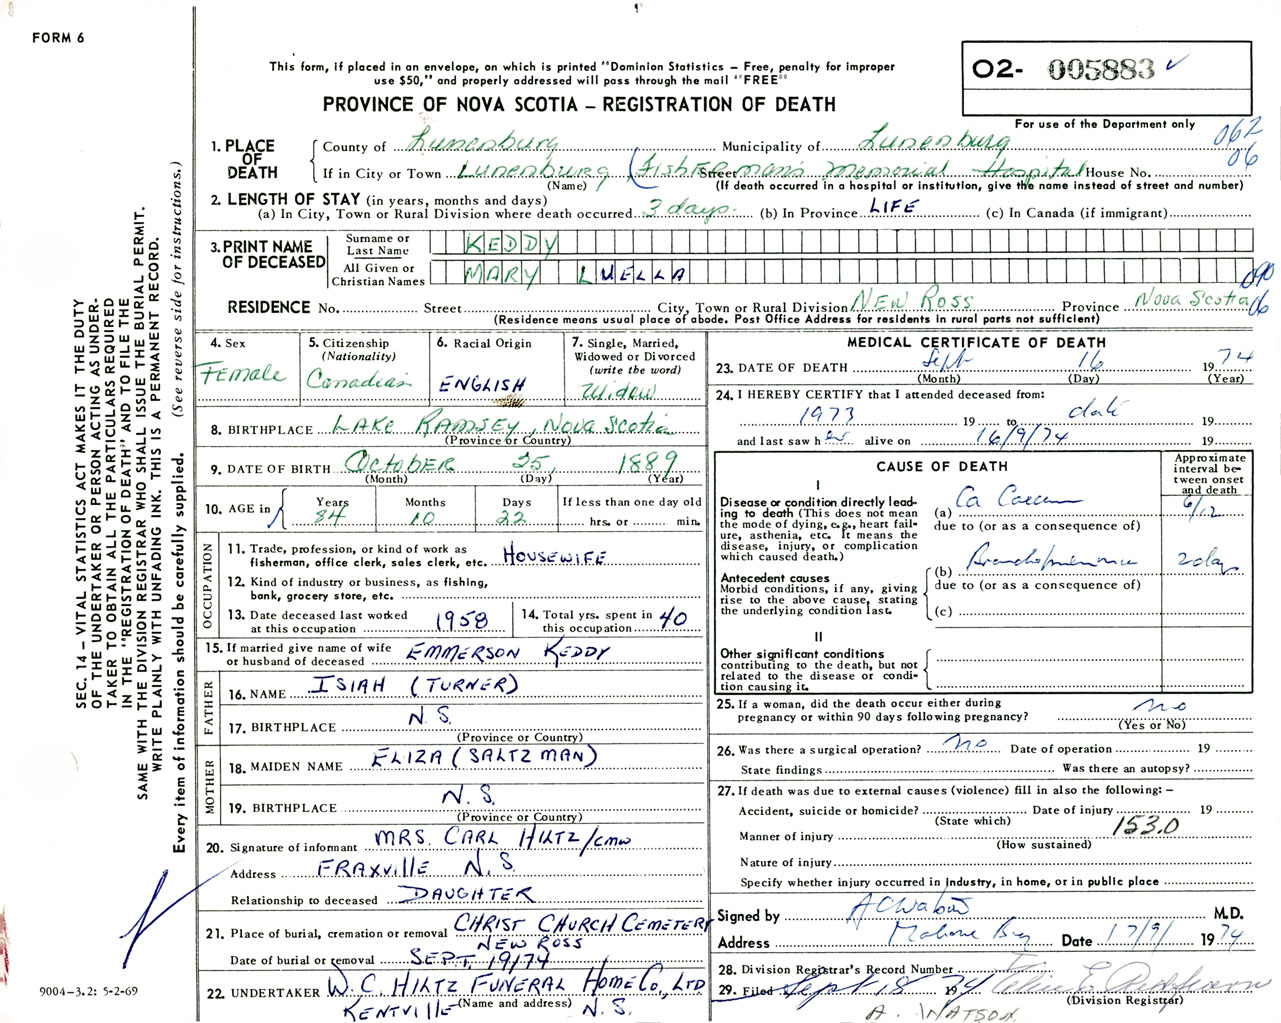 FORM 6
This form, if placed in an envelope, on which is printed "Dominion Statistics – Free, penalty for improper
use $50," and properly addressed will pass through the mail "FREE"
PROVINCE OF NOVA SCOTIA – REGISTRATION OF DEATH
O2- 005883
For use of the Department only
062
06
1. PLACE OF DEATH
County of Lunenburg Municipality of Lunenburg
If in City or Town Lunenburg (Fisherman's Memorial Hospital Street House No.
(Name) (If death occurred in a hospital or institution, give the name instead of street and number)
2. LENGTH OF STAY (in years, months and days)
(a) In City, Town or Rural Division where death occurred 3 days. (b) In Province LIFE (c) In Canada (if immigrant)
3. PRINT NAME OF DECEASED
Surname or Last Name KEDDY
All Given or Christian Names MARY LUELLA
090
06
RESIDENCE No. Street City, Town or Rural Division NEW ROSS Province Nova Scotia
(Residence means usual place of abode. Post Office Address for residents in rural parts not sufficient)
4. Sex
Female
5. Citizenship
(Nationality)
Canadian
6. Racial Origin
ENGLISH
7. Single, Married,
Widowed or Divorced
(write the word)
Widow
8. BIRTHPLACE LAKE RAMSEY, Nova Scotia
(Province or Country)
9. DATE OF BIRTH October 25, 1889
(Month) (Day) (Year)
10. AGE in
Years Months Days If less than one day old
84 10 22 hrs. or min.
OCCUPATION
11. Trade, profession, or kind of work as
fisherman, office clerk, sales clerk, etc. HOUSEWIFE
12. Kind of industry or business, as fishing,
bank, grocery store, etc.
13. Date deceased last worked
at this occupation 1958
14. Total yrs. spent in
this occupation 40
15. If married give name of wife
or husband of deceased EMMERSON KEDDY
FATHER
16. NAME ISIAH (TURNER)
17. BIRTHPLACE N.S.
(Province or Country)
MOTHER
18. MAIDEN NAME ELIZA (SALTZMAN)
19. BIRTHPLACE N.S.
(Province or Country)
20. Signature of informant MRS. CARL HILTZ/cmw
Address FRAXVILLE N.S.
Relationship to deceased DAUGHTER
21. Place of burial, cremation or removal CHRIST CHURCH CEMETERY
NEW ROSS
Date of burial or removal SEPT. 19/74
22. UNDERTAKER W.C. HILTZ FUNERAL HOME CO., LTD
(Name and address)
KENTVILLE N.S.
MEDICAL CERTIFICATE OF DEATH
23. DATE OF DEATH Sept 16 1974
(Month) (Day) (Year)
24. I HEREBY CERTIFY that I attended deceased from:
1973 19 to date 19
and last saw her alive on 16/9/74 19
CAUSE OF DEATH
Approximate
interval be-
tween onset
and death
I
Disease or condition directly lead-
ing to death (This does not mean
the mode of dying, e.g., heart fail-
ure, asthenia, etc. It means the
disease, injury, or complication
which caused death.)
(a) Ca Caecum 6/12
due to (or as a consequence of)
Antecedent causes
Morbid conditions, if any, giving
rise to the above cause, stating
the underlying condition last.
(b) Bronchopneumonia 2 days
due to (or as a consequence of)
(c)
II
Other significant conditions
contributing to the death, but not
related to the disease or condi-
tion causing it.
25. If a woman, did the death occur either during
pregnancy or within 90 days following pregnancy? no
(Yes or No)
26. Was there a surgical operation? no Date of operation 19
State findings Was there an autopsy?
27. If death was due to external causes (violence) fill in also the following: –
Accident, suicide or homicide? Date of injury 19
(State which)
153.0
Manner of injury
(How sustained)
Nature of injury
Specify whether injury occurred in Industry, in home, or in public place
Signed by M.D.
Address Mahone Bay Date 17/9/ 1974
28. Division Registrar's Record Number
29. Filed Sept 18 1974
(Division Registrar)
A. WATSON
SEC. 14 – VITAL STATISTICS ACT MAKES IT THE DUTY
OF THE UNDERTAKER OR PERSON ACTING AS UNDER-
TAKER TO OBTAIN ALL THE PARTICULARS REQUIRED
IN THE "REGISTRATION OF DEATH" AND TO FILE THE
SAME WITH THE DIVISION REGISTRAR WHO SHALL ISSUE THE BURIAL PERMIT.
WRITE PLAINLY WITH UNFADING INK. THIS IS A PERMANENT RECORD.
Every item of information should be carefully supplied. (See reverse side for instructions.)
9004–3.2: 5-2-69